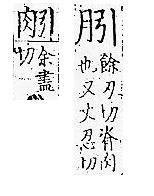 䏖
餘刃切脊肉
也又火忍切
䏖
余盡
切